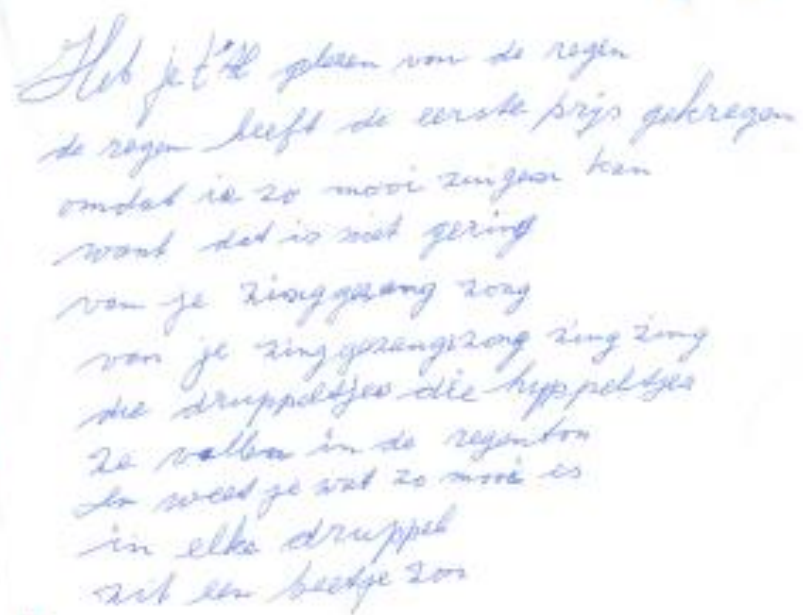 Heb je 't al gelezen van de regen
de regen heeft de eerste prijs gekregen
omdat ie zo mooi zingen kan
want dat is niet gering
van je zinggezang zong
van je zinggezangzong zing zing
die druppeltjes die hyppeltjes
ze vallen in de regenton
en weet je wat zo mooi is
in elke druppel
zit een beetje zon